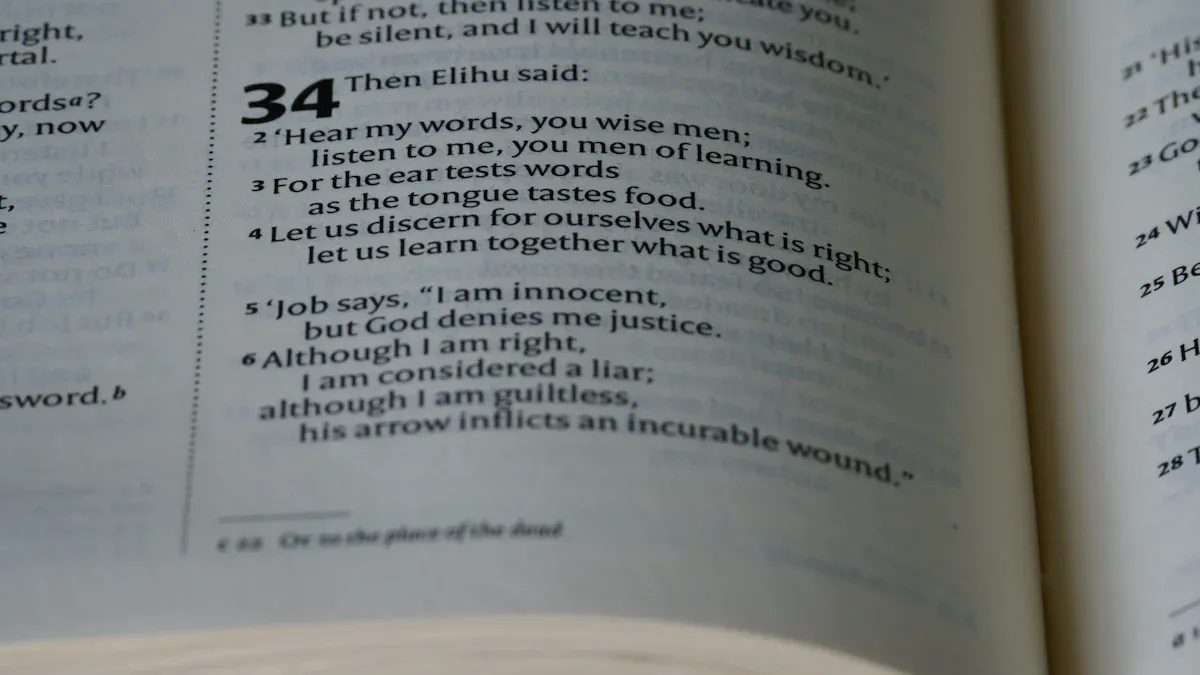 right,
rtal.
ords a?
y, now
t,
e
sword. b
cate you.
33 But if not, then listen to me;
be silent, and I will teach you wisdom.'
34 Then Elihu said:
2 ‘Hear my words, you wise men;
listen to me, you men of learning.
3 For the ear tests words
as the tongue tastes food.
4 Let us discern for ourselves what is right;
let us learn together what is good.
5 ‘Job says, “I am innocent,
but God denies me justice.
6 Although I am right,
I am considered a liar;
although I am guiltless,
his arrow inflicts an incurable wound.”
Or to the place of the dead
21 ‘His
h
22 The
23 Go
24 Wi
25 Be
26 H
27 b
28 T